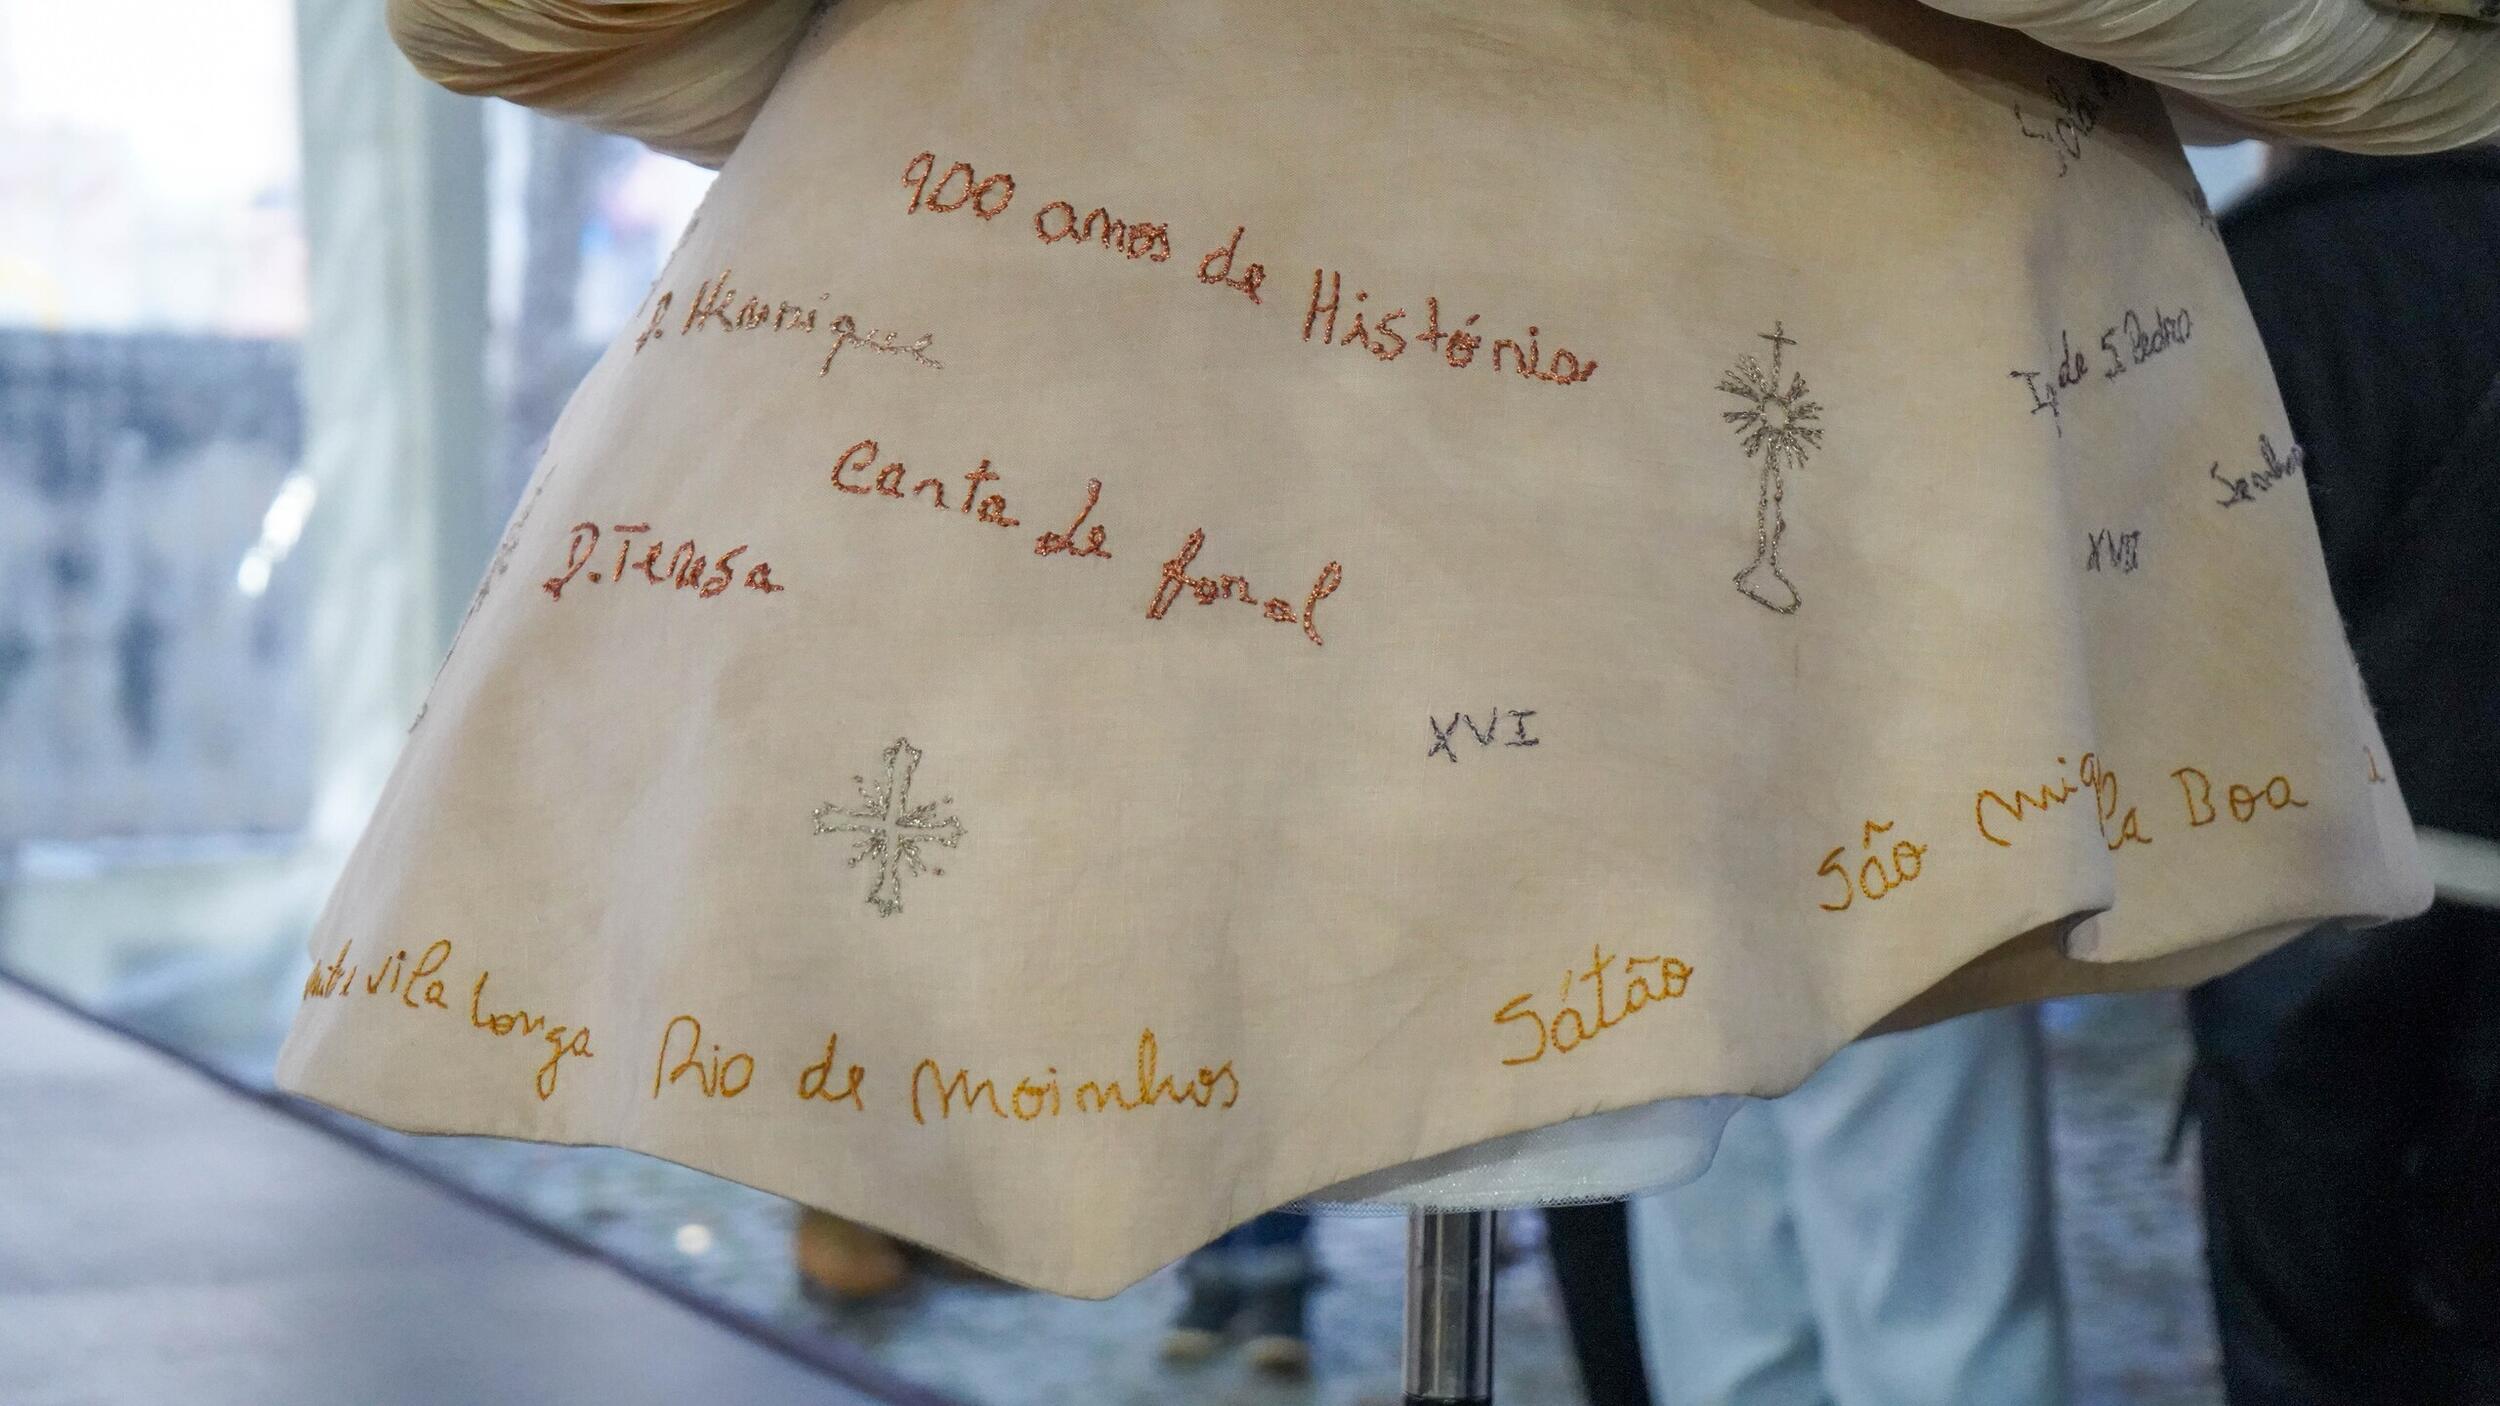 900 anos de História
D. Henrique
Carta de foral
D. Teresa
de S. Pedro
XVII
XVI
São
Boa
Sátão
vila Longa
Rio de Moinhos